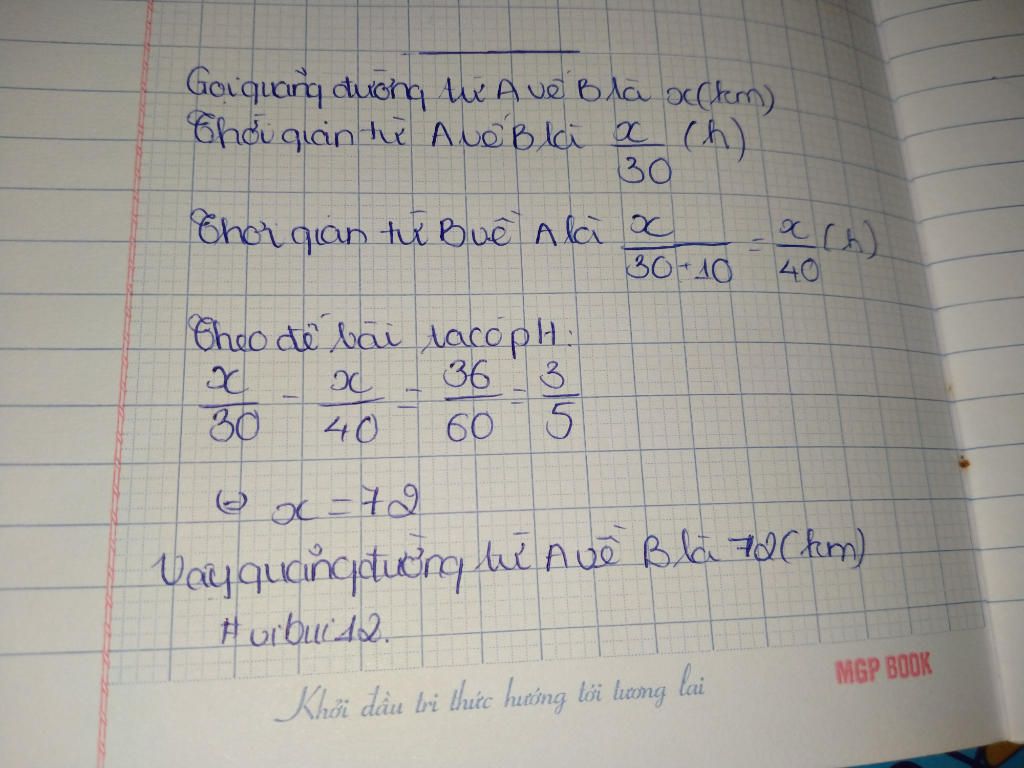 Gọi quãng đường từ A về B là x (km)
Thời gian từ A về B là x/30 (h)
Thời gian từ B về A là x/(30+10) = x/40 (h)
Theo đề bài ta có pt:
x/30 - x/40 = 36/60 = 3/5
⇔ x = 72
Vậy quãng đường từ A về B là 72 (km)
#vibui12.
Khởi đầu tri thức hướng tới tương lai
MGP BOOK